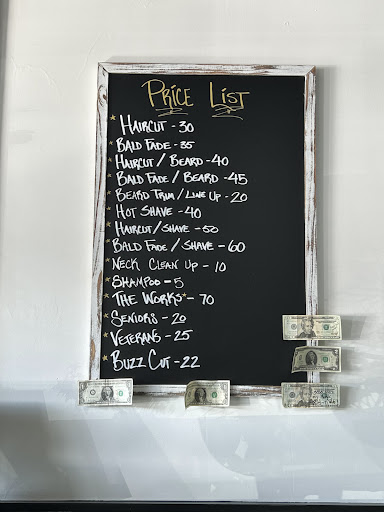 PRICE LIST
* HAIRCUT - 30
* BALD FADE - 35
* HAIRCUT / BEARD - 40
* BALD FADE / BEARD - 45
* BEARD TRIM / LINE UP - 20
* HOT SHAVE - 40
* HAIRCUT / SHAVE - 50
* BALD FADE / SHAVE - 60
* NECK CLEAN UP - 10
* SHAMPOO - 5
* THE WORKS* - 70
* SENIORS - 20
* VETERANS - 25
* BUZZ CUT - 22